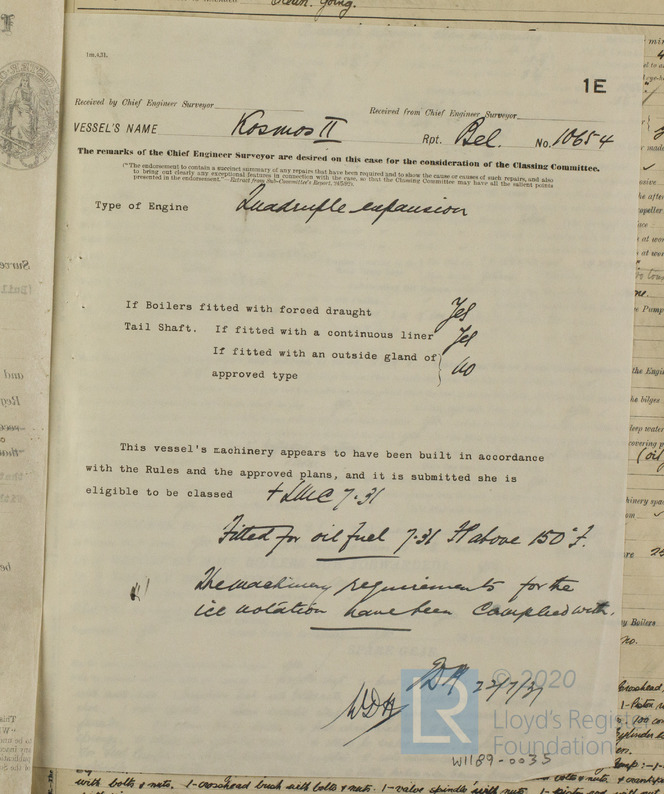 1m.4.31.
1E
Received by Chief Engineer Surveyor
Received from Chief Engineer Surveyor
VESSEL'S NAME Kosmos II Rpt. Bel. No. 10654
The remarks of the Chief Engineer Surveyor are desired on this case for the consideration of the Classing Committee.
("The endorsement to contain a succinct summary of any repairs that have been required and to show the cause or causes of such repairs, and also
to bring out clearly any exceptional features in connection with the case, so that the Classing Committee may have all the salient points
presented in the endorsement."—Extract from Sub-Committee's Report,
Type of Engine Quadruple expansion
If Boilers fitted with forced draught Yes
Tail Shaft. If fitted with a continuous liner Yes
If fitted with an outside gland of
approved type no
This vessel's machinery appears to have been built in accordance
with the Rules and the approved plans, and it is submitted she is
eligible to be classed + LMC 7·31
Fitted for oil fuel 7·31 F above 150°F.
The machinery requirements for the
ice notation have been complied with.
22/7/31
WDH
LR
© 2020
Lloyd's Register
Foundation
W1189-0035
with bolts & nuts. 1-crosshead bush with bolts & nuts. 1-valve spindle with nuts.